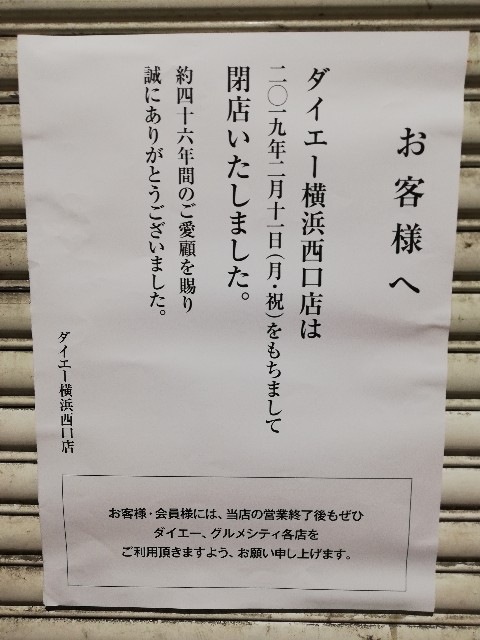 お客様へ
ダイエー横浜西口店は
二〇一九年二月十一日(月・祝)をもちまして
閉店いたしました。
約四十六年間のご愛顧を賜り
誠にありがとうございました。
ダイエー横浜西口店
お客様・会員様には、当店の営業終了後もぜひ
ダイエー、グルメシティ各店を
ご利用頂きますよう、お願い申し上げます。